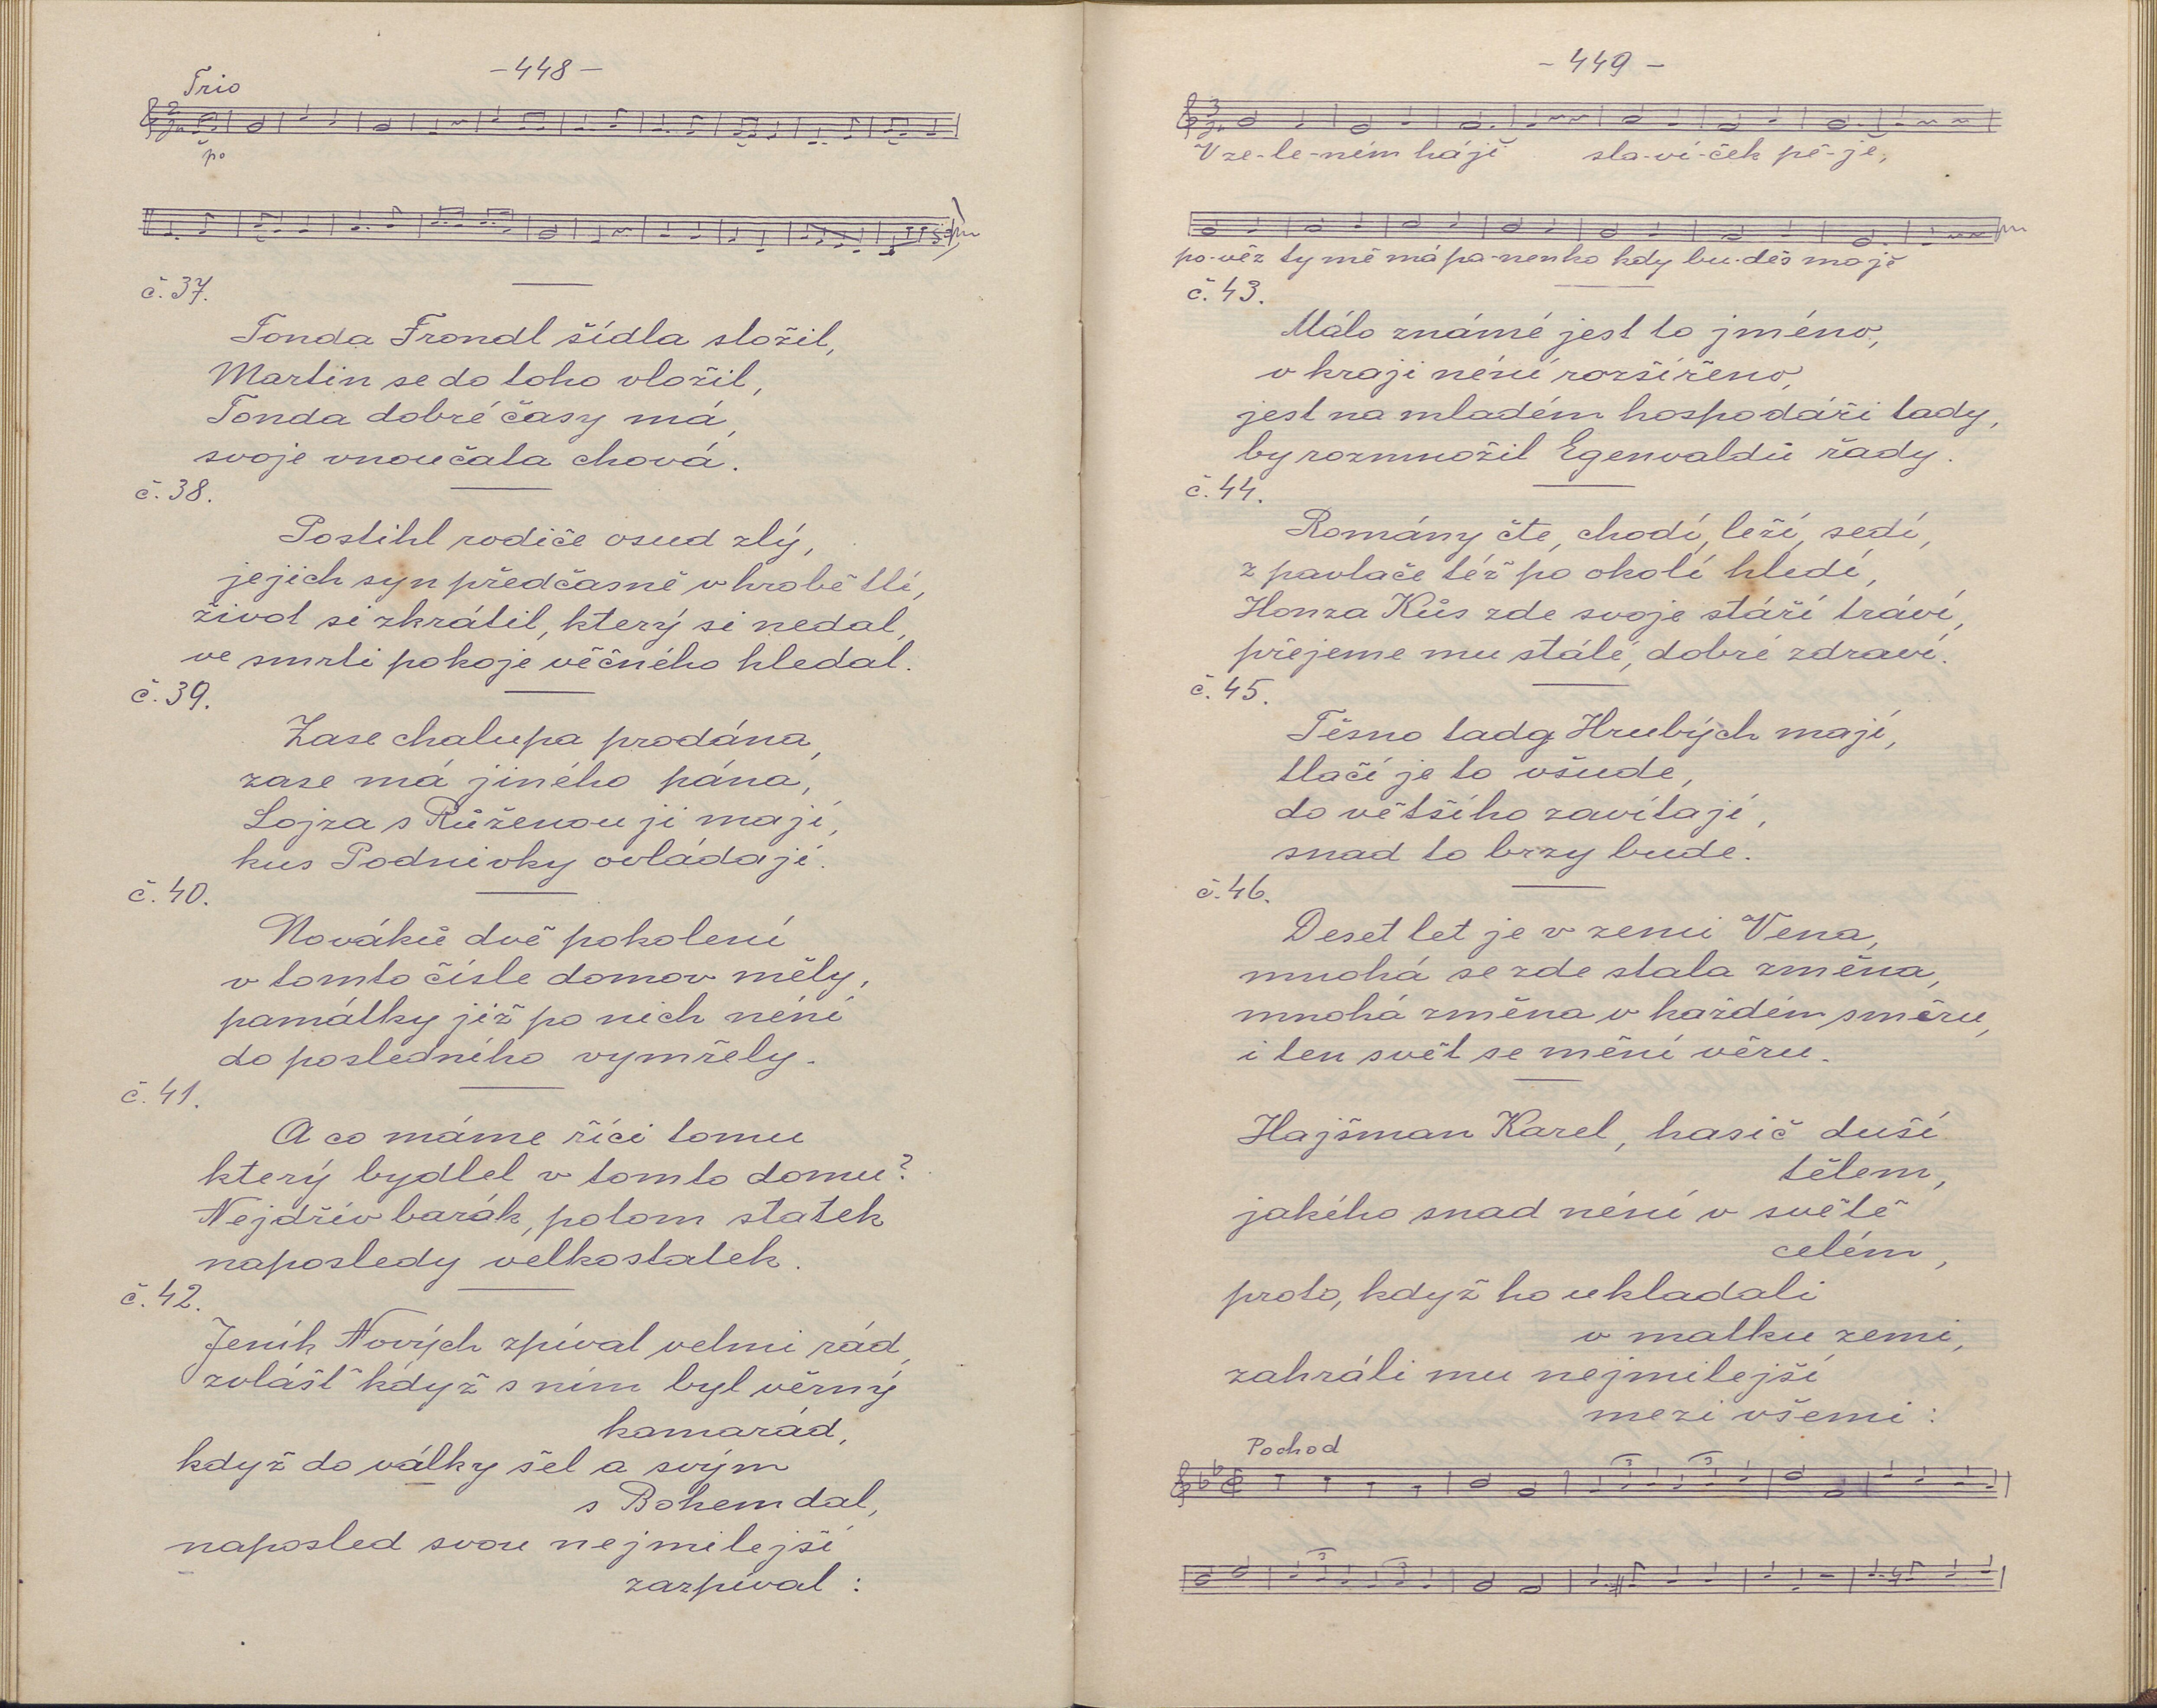 - 448 -
Trio
po
č. 37.
Tonda Frondl šídla složil,
Martin se do toho vložil,
Tonda dobré časy má,
svoje vnoučata chová.
č. 38.
Postihl rodiče osud zlý,
jejich syn předčasně v hrobě tlí,
život si zkrátil, který si nedal,
ve smrti pokoje věčného hledal.
č. 39.
Zase chalupa prodána,
zase má jiného pána,
Lojza s Růženou ji mají,
kus Podnivky ovládají.
č. 40.
Nováků dvě pokolení
v tomto čísle domov měly,
památky již po nich néní
do posledního vymřely.
č. 41.
A co máme říci tomu
který bydlel v tomto domu?
Nejdřív barák, potom statek
naposledy velkostatek.
č. 42.
Jeník Nových zpíval velmi rád,
zvlášť když s ním byl věrný
kamarád,
když do války šel a svým
s Bohem dal,
naposled svou nejmilejší
zazpíval :
- 449 -
V ze-le-ném hájě sla-ví-ček pě-jě,
po-věz ty mě má pa-nenko kdy bu-děš mojě
č. 43.
Málo známé jest to jméno,
v kraji néní rozšířeno,
jest na mladém hospodáři tady,
by rozmnožil Egenvaldů řady.
č. 44.
Romány čte, chodí, leží, sedí,
z pavlače též po okolí hledí,
Honza Kůs zde svoje stáří tráví,
přejeme mu stálé, dobré zdraví.
č. 45.
Těsno tady Hrubých mají,
tlačí je to všude,
do většího zavítají,
snad to brzy bude.
č. 46.
Deset let je v zemi Vena,
mnohá se zde stala změna,
mnohá změna v každém směru,
i ten svět se mění věru.
Hajšman Karel, hasič duší
tělem,
jakého snad néní v světě
celém,
proto, když ho ukladali
v matku zemi,
zahráli mu nejmilejší
mezi všemi :
Pochod
3 3
3 3